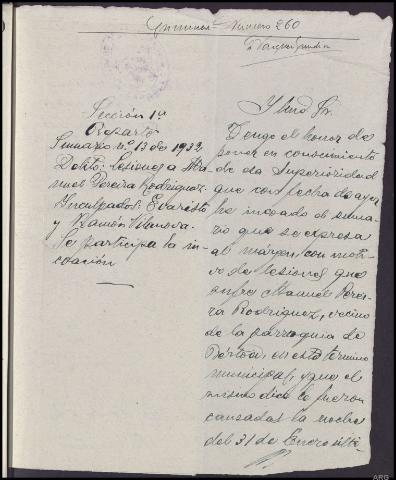 Número 260
Sección 1ª
Reparto
Sumario nº 13 de 1932
Delito: Lesiones a Ma-
nuel Pereira Rodríguez.
Inculpados: Evaristo
y Ramón Vilanova.
Se participa la in-
coación
Ilmo. Sr.
Tengo el honor de
poner en conocimiento
de esa Superioridad
que con fecha de ayer
he incoado el suma-
rio que se expresa
al márgen, con moti-
vo de lesiones que
sufre Manuel Perei-
ra Rodríguez, vecino
de la parroquia de
en este término
municipal, y que el
mismo dice le fueron
causadas la noche
del 31 de Enero últi-
ARG